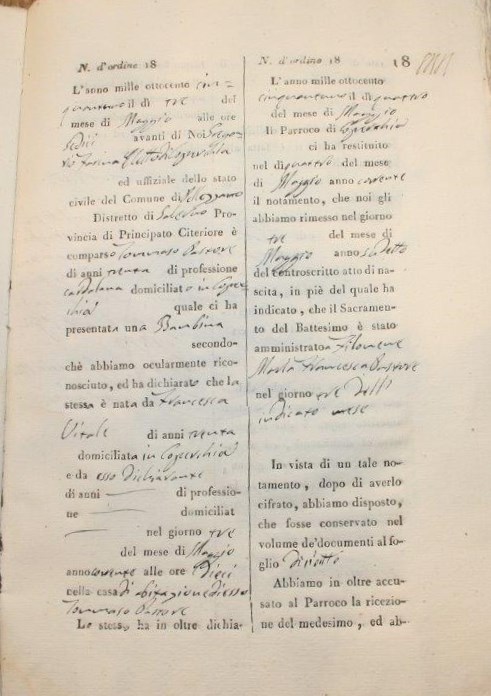 N. d'ordine 18
L'anno mille ottocento cin=
quantuno il di tre del
mese di Maggio alle ore
sedici avanti di Noi Grego=
rio Farina Eletto di Coperchia
ed uffiziale dello stato
civile del Comune di Pellezzano
Distretto di Salerno Pro-
vincia di Principato Citeriore è
comparso Tommaso Pastore
di anni trenta di professione
domiciliato in Coper
chia quale ci ha
presentata una Bambina
secondo-
chè abbiamo ocularmente rico-
nosciuto, ed ha dichiarato che la
stessa è nata da Francesca
Vitale di anni trenta
domiciliata in Coperchia
e da esso Dichiarante
di anni — di professio-
ne — domiciliat
— nel giorno tre
del mese di Maggio
anno corrente alle ore Dieci
nella casa di abitazione di esso
Tommaso Pastore
Lo stesso ha in oltre dichia-
N. d'ordine 18
18
L'anno mille ottocento
cinquantuno il di quattro
del mese di Maggio
Il Parroco di Coperchia
ci ha restituito
nel di quattro del mese
di Maggio anno corrente
il notamento, che noi gli
abbiamo rimesso nel giorno
tre del mese di
Maggio anno sudetto
del controscritto atto di na-
scita, in piè del quale ha
indicato, che il Sacramen-
to del Battesimo è stato
amministrato a Filomena
Maria Francesca Pastore
nel giorno tre dell'
indicato mese
In vista di un tale no-
tamento, dopo di averlo
cifrato, abbiamo disposto,
che fosse conservato nel
volume de'documenti al fo-
glio
Abbiamo in oltre accu-
sato al Parroco la ricezio-
ne del medesimo, ed ab-